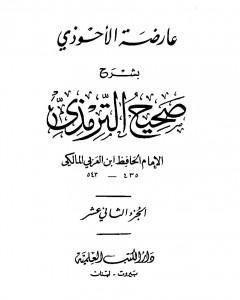 عارضة الأحوذي
بشرح
صحيح الترمذي
الإمام الحافظ ابن العربي المالكي
٤٣٥ — ٥٤٣
الجزء الثاني عشر
دار الكتب العلمية
بيروت - لبنان